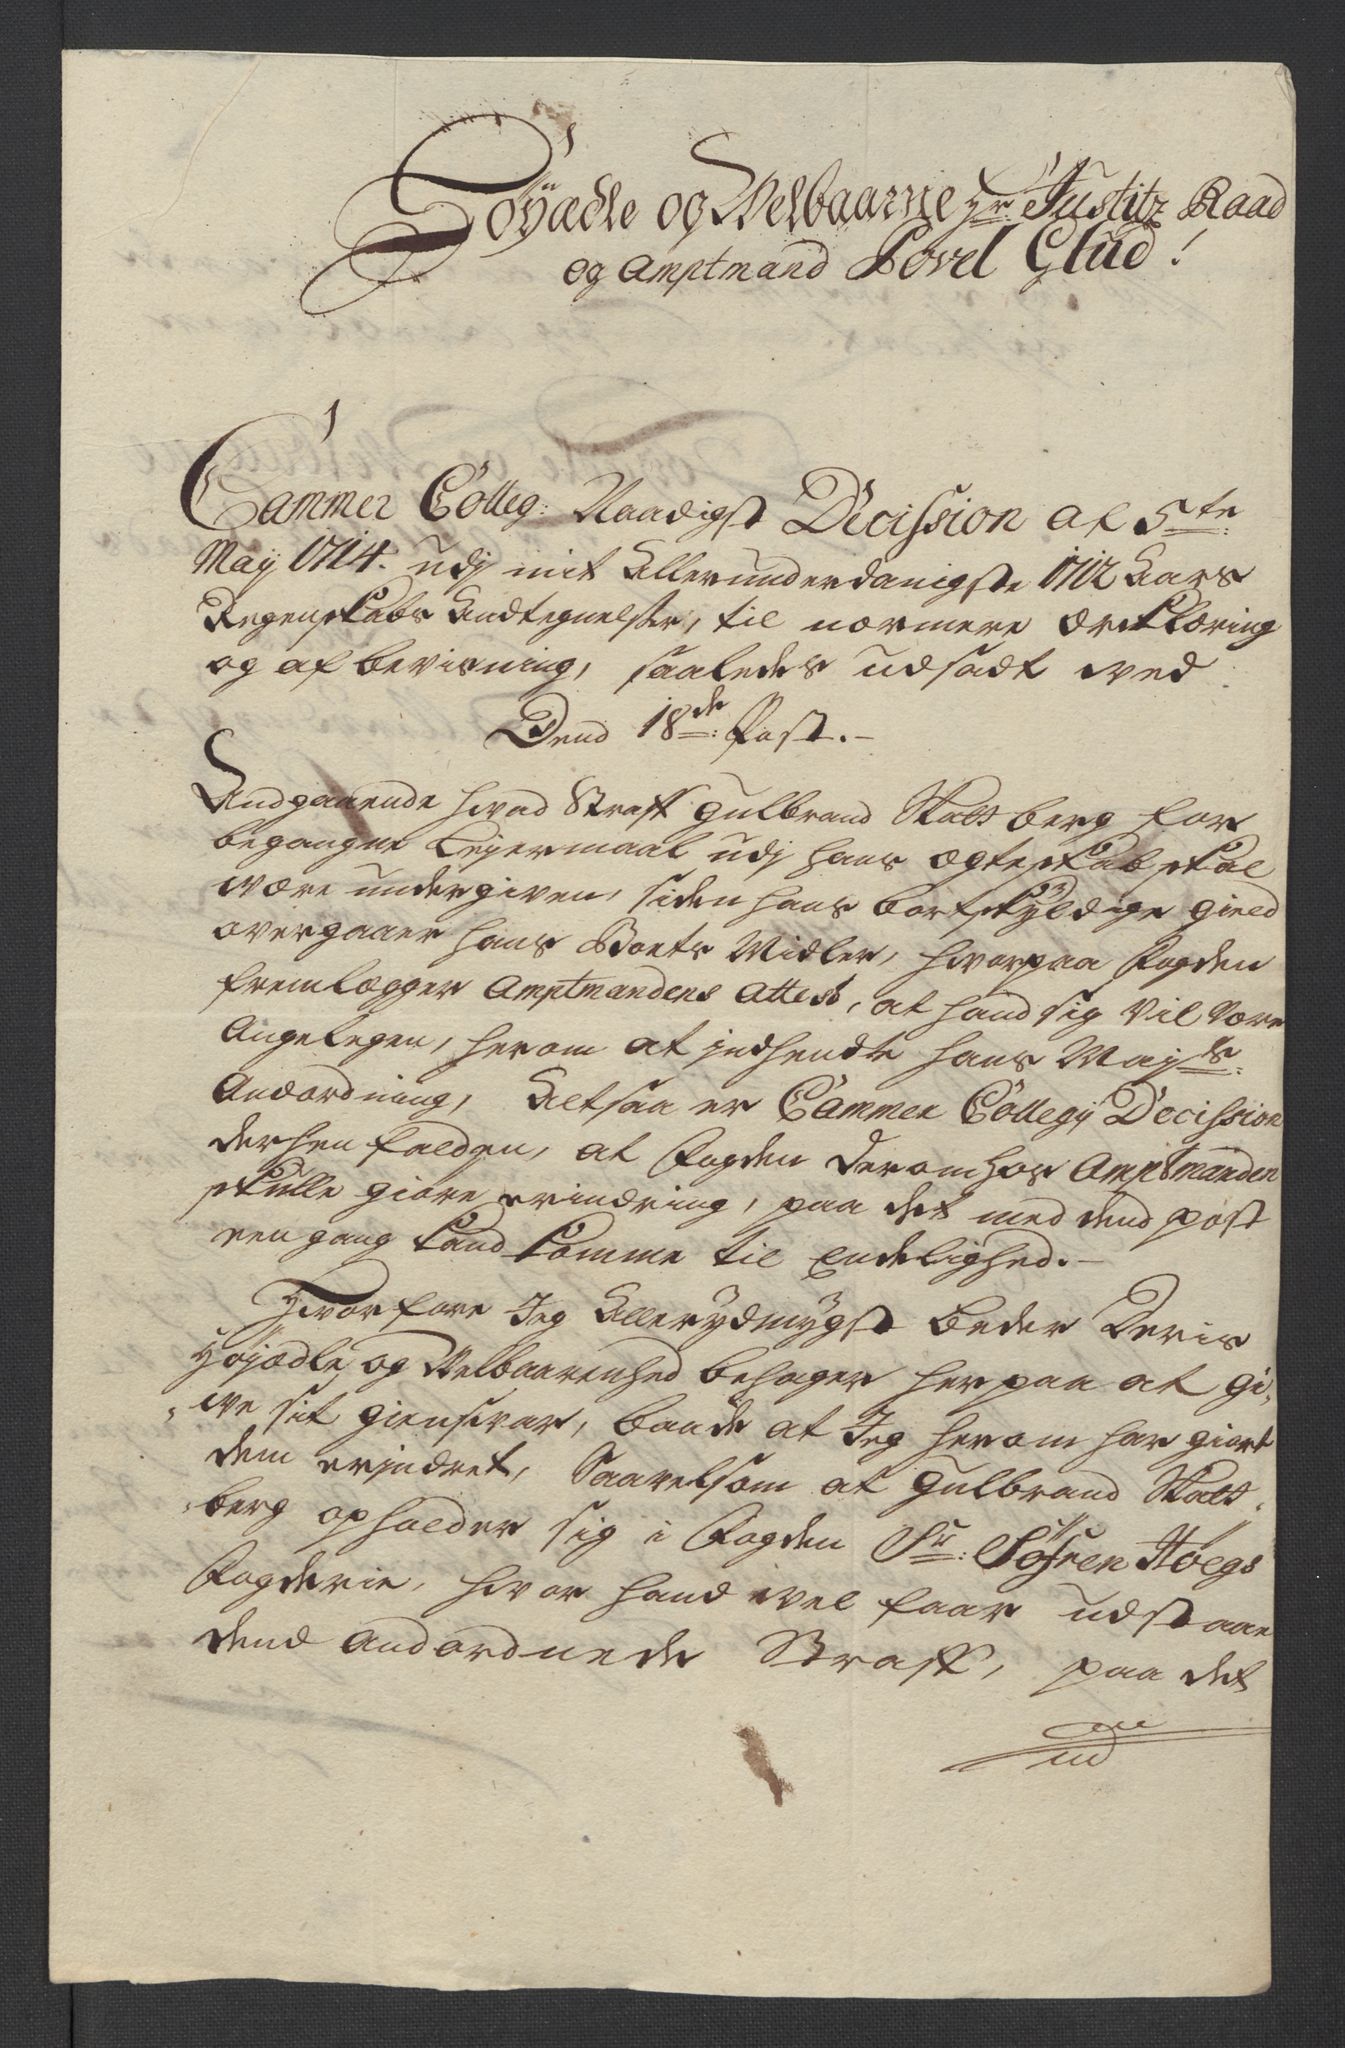 Höyædle og Welbaarne Hr Justitz Raad
og Amptmand Povel Glud!
Cammer Colleg: Naadigst Decission af 5te
May 1714. udj mit Allerunderdanigste 1712 Aars
Regenskabs Andtegnelser, til nærmere ærklæring
og af bevisning, saaledes udsadt ved
Dend 18de: Post.-
Andgaaende hvad Straff Gulbrand Skatt berg for
begangne Leyermaal udj hans ægteskab skal
være undergiven, siden hans bortskyldige gield
overgaaer hans Boets Midler, hvorpaa Fogden
fremlægger Amptmandens Attest, at hand sig vil være
Angelegen, herom at indhendte hans Mayts:
Andordning, Altsaa er Cammer Collegij Decission
derhen falden, at Fogden derom hos Amptmanden
skulle giøre erindring, paa det med dend post
een gang kand komme til Endelighed.-
Hvorfore Jeg Allerydmygst beder Deris
Höyædle og Welbaarenhed behager her paa at gi-
ve sit giensvar, baade at Jeg herom har giort
dem erindret, Saavelsom at Gulbrand Skatt-
berg opholder sig i Fogden Sr: Söfren Hoegs
Fogderie, hvor hand vel faar udstaae
dend Andordnede Straff, paa det